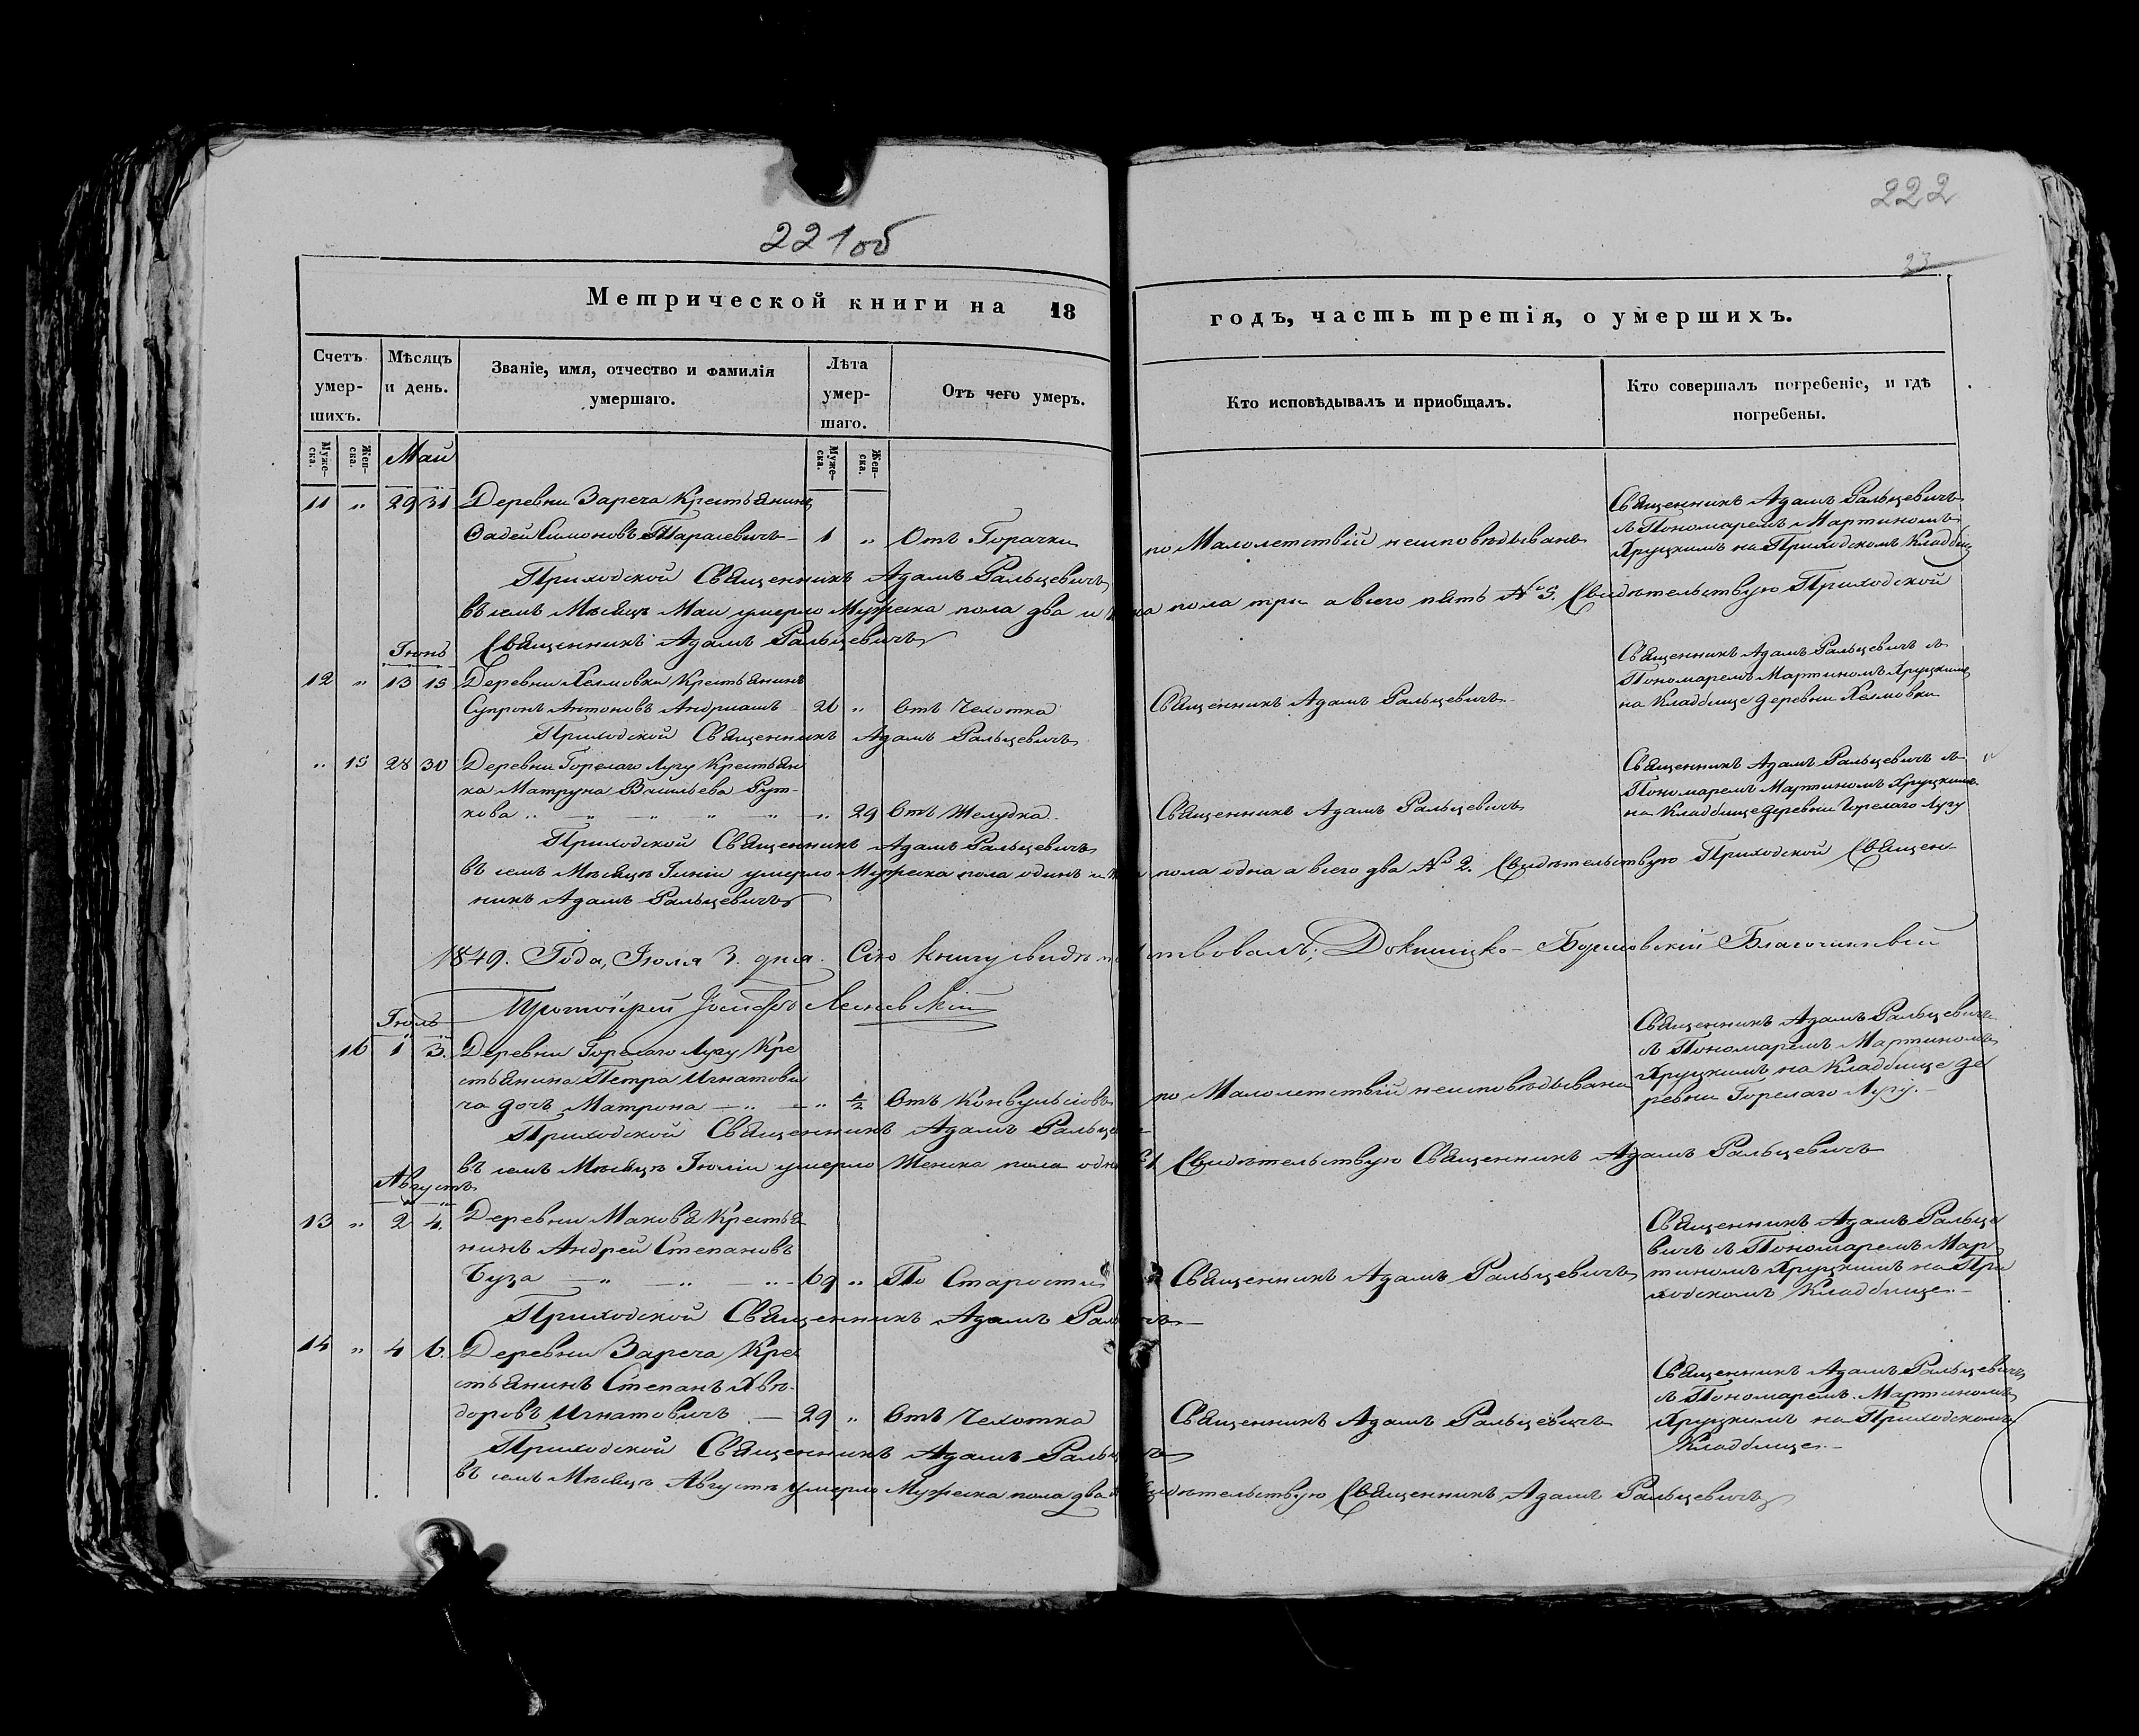 221об
222
23
Метрической книги на 18
годъ, часть третія, о умершихъ.
Счетъ умер-шихъ.
Мѣсяцъ и день.
Званіе, имя, отчество и фамилія умершаго.
Лѣта умер-шаго.
Отъ чего умеръ.
Кто исповѣдывалъ и приобщалъ.
Кто совершалъ погребеніе, и гдѣ погребены.
Муже-ска.
Жен-ска.
Муже-ска.
Жен-ска.
Май
11 „ 29 31 Деревни Зареча Крестьянинъ
Фадей Симоновъ Тарасевичъ 1 „ Отъ Горачки
по Малолетствій неисповѣдыванъ
Священникъ Адамъ Ральцевичъ
съ Пономаремъ Мартиномъ
Хруцкимъ на Приходскомъ Кладбищ
Приходской Священникъ Адамъ Ральцевичъ
въ семъ Мѣсяцъ Маи умерло Мужеска пола два и
пола три а всего пять № 5. Свидѣтельствую Приходской
Священникъ Адамъ Ральцевичъ
Іюнь
12 „ 13 15 Деревни Хелмовки Крестьянинъ
Супронъ Антоновъ Андриашъ 26 „ Отъ Чехотка
Священникъ Адамъ Ральцевичъ
Священникъ Адамъ Ральцевичъ съ
Пономаремъ Мартиномъ Хруцкимъ
на Кладбище деревни Хелмовки
Приходской Священникъ Адамъ Ральцевичъ
„ 15 28 30 Деревни Горелаго Лугу Крестьян
ка Матруна Васильева Рут-
кова „ „ „ „ „ „ 29 Отъ Желудка
Священникъ Адамъ Ральцевичъ
Священникъ Адамъ Ральцевичъ съ
Пономаремъ Мартиномъ Хруцкимъ
на Кладбище деревни Горелаго Лугу
Приходской Священникъ Адамъ Ральцевичъ
въ семъ Мѣсяцъ Іюніи умерло Мужеска пола одинъ и
пола одна а всего два № 2. Свидѣтельствую Приходской Священ-
никъ Адамъ Ральцевичъ
1849. Года, Іюля 3. дня. Сію книгу свидѣтельствовалъ; Докшицко-Борисовскій Благочинный
Протоіерей Іосифъ
Іюль
16 1 3. Деревни Горелаго Лугу Кре
стьянина Петра Игнатови
ча дочь Матрона „ „ ½ Отъ Конвульсіовъ
по Малолетствій неисповѣдывана
Священникъ Адамъ Ральцевичъ
съ Пономаремъ Мартиномъ
Хруцкимъ на Кладбище де
ревни Горелаго Лугу.
Приходской Священникъ Адамъ Ральце
въ семъ Мѣсяцъ Іюліи умерло Женска пола одна
№ 1. Свидѣтельствую Священникъ Адамъ Ральцевичъ
Августъ
13 „ 2 4. Деревни Маковя Крестья
нинъ Андрей Степановъ
Буза „ „ „ 69 „ По Старости
Священникъ Адамъ Ральцевичъ
Священникъ Адамъ Ральце
вичъ съ Пономаремъ Мар
тиномъ Хруцкимъ на При
ходскомъ Кладбище.
Приходской Священникъ Адамъ Ральцевичъ
14 „ 4 6. Деревни Зареча Кре
стьянинъ Степанъ Хвѣ-
доровъ Игнатовичъ 29 „ Отъ Чехотка
Священникъ Адамъ Ральцевичъ
Священникъ Адамъ Ральцевичъ
съ Пономаремъ Мартиномъ
Хруцкимъ на Приходскомъ
Кладбище.
Приходской Священникъ Адамъ Ральцевичъ
въ семъ Мѣсяцъ Августъ умерло Мужеска пола два
Свидѣтельствую Священникъ Адамъ Ральцевичъ